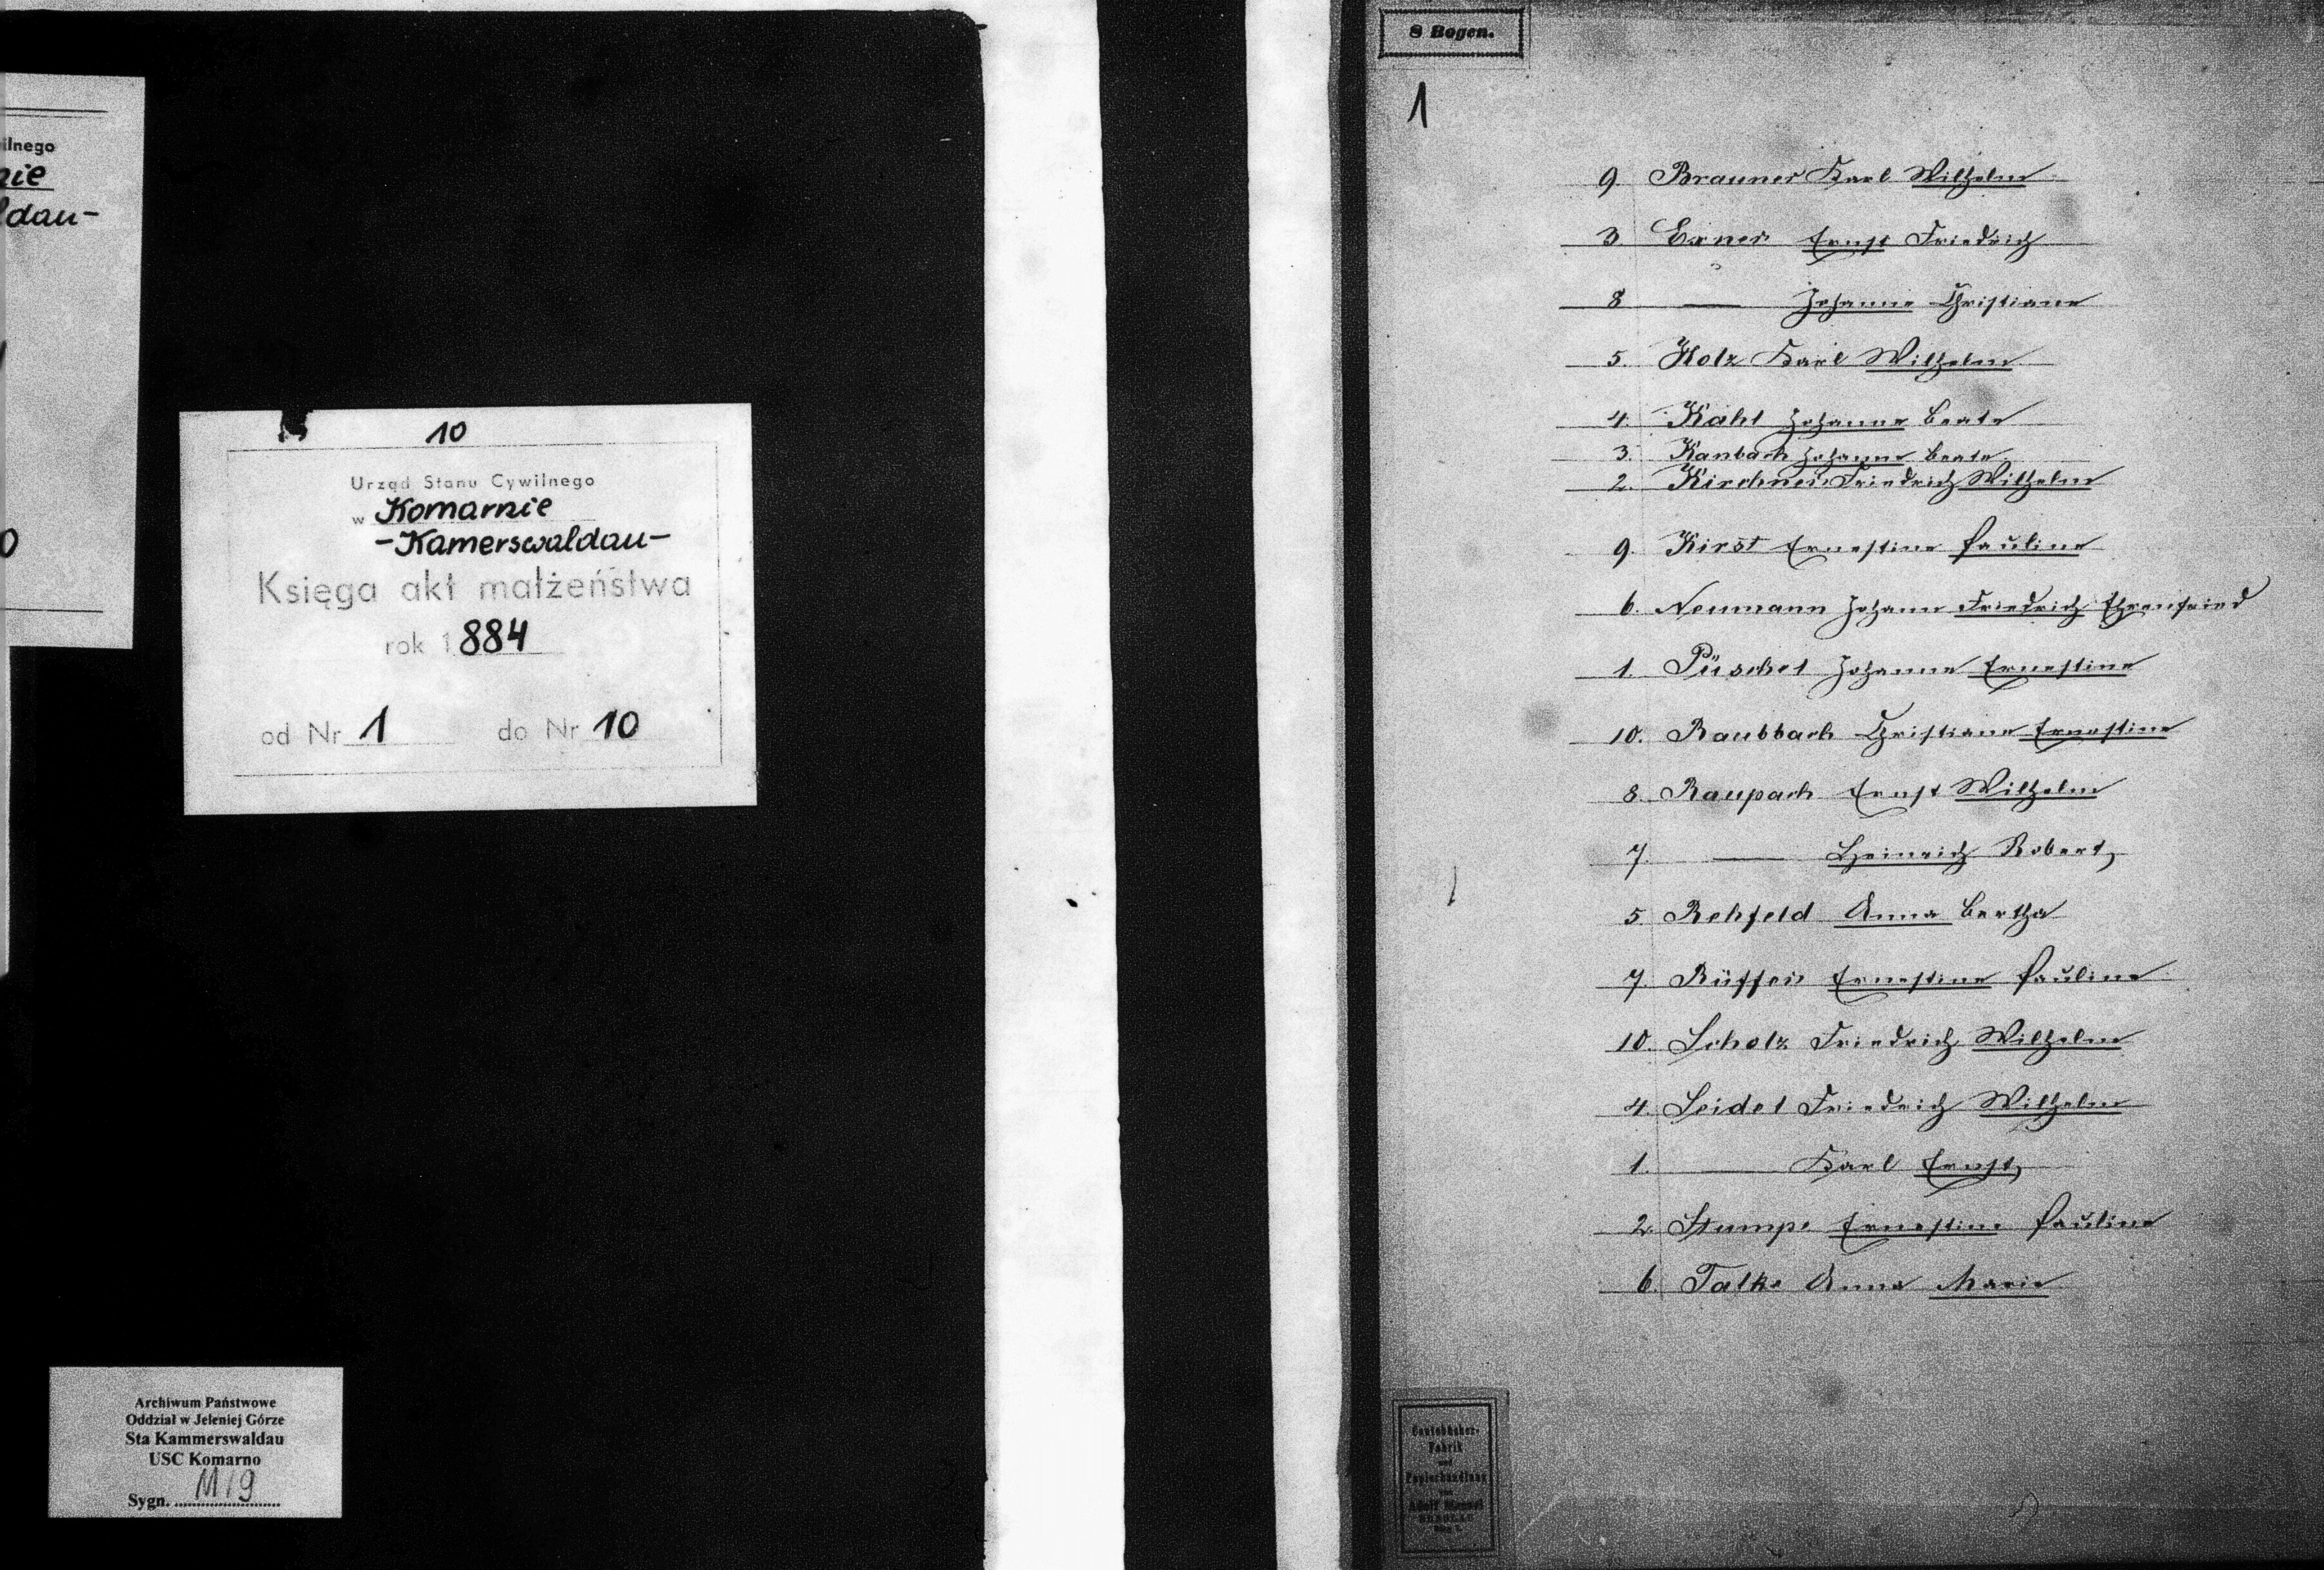 ilnego
nie
ldau-
0
10
Urząd Stanu Cywilnego
w Komarnie
-Kamerswaldau-
Księga akt małżeństwa
rok 1884
od Nr 1 do Nr 10
Archiwum Państwowe
Oddział w Jeleniej Górze
Sta Kammerswaldau
USC Komarno
Sygn. M/9
8 Bogen.
1
9. Brauner Karl Wilhelm
3 Exner Ernst Friedrich
8 — Johanne Christiane
5. Holz Karl Wilhelm
4. Kahl Johanne Beate
3. Kanbach Johanne Beate
2. Kirchner Friedrich Wilhelm
9. Kirst Ernestine Pauline
6. Neumann Johann Friedrich Ehrenfried
1. Püschel Johanne Ernestine
10. Raubbach Christiane Ernestine
8. Raupach Ernst Wilhelm
7. — Heinrich Robert,
5. Rehfeld Anna Bertha
7. Rüffer Ernestine Pauline
10. Scholz Friedrich Wilhelm
4. Seidel Friedrich Wilhelm
1. — Karl Ernst,
2. Stumpe Ernestine Pauline
6. Talke Anna Marie
Contobücher-
Fabrik
und
Papierhandlung
von
Adolf
BRESLAU